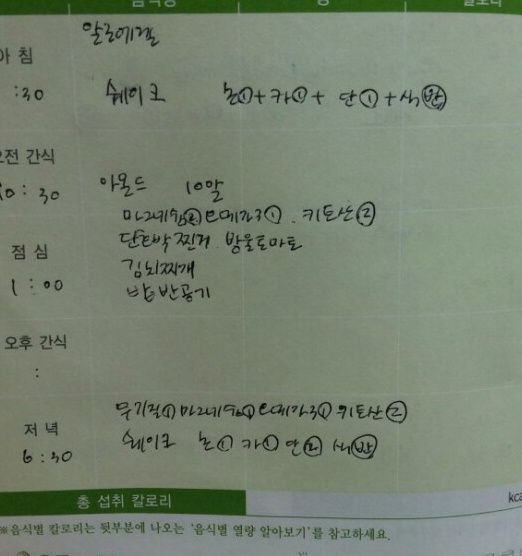 음식명 양 칼로리
알로에겔
아침
:30 쉐이크 논①+카①+ 단①+식㉫
오전 간식
10:30 아몬드 10알
마그네슘② 오메가3①. 키토산②
단호박 찐거. 방울토마토
점심
김치찌개
1:00 밥 반공기
오후 간식
:
무기질① 마그네슘① 오메가3① 키토산②
저녁
6:30 쉐이크 논① 카① 단② 식㉫
총 섭취 칼로리 kca
※음식별 칼로리는 뒷부분에 나오는 '음식별 열량 알아보기'를 참고하세요.